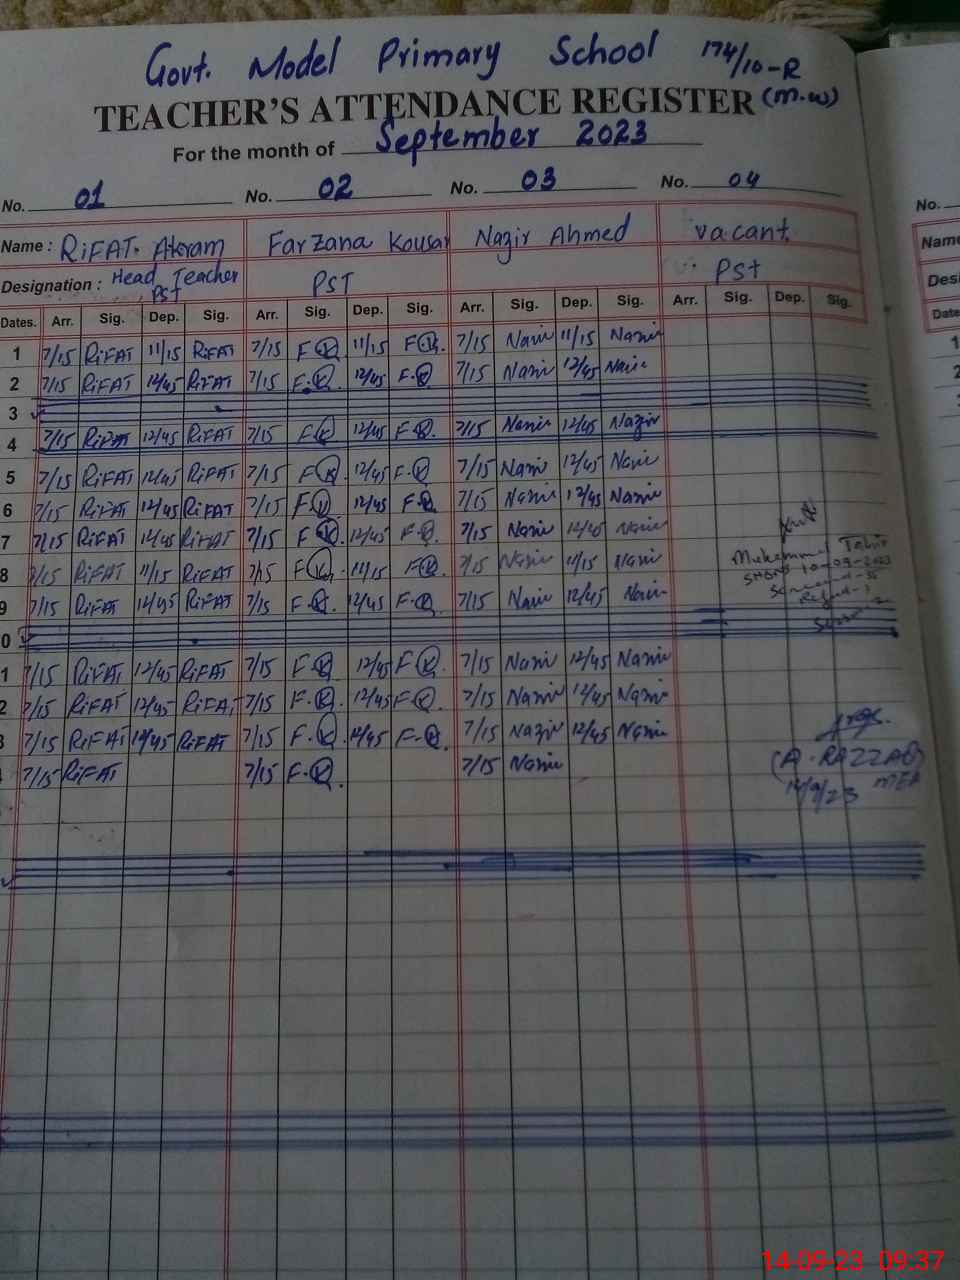 Govt. Model Primary School 174/10-R
TEACHER'S ATTENDANCE REGISTER (m.w)
For the month of September 2023
No. 01 No. 02 No. 03 No. 04 No.
Name : RiFAT. Akram Farzana Kousar Nazir Ahmed vacant. Name
Designation : Head Teacher PST PST PSt Desi
Dates. Arr. Sig. Dep. Sig. Arr. Sig. Dep. Sig. Arr. Sig. Dep. Sig. Arr. Sig. Dep. Sig. Date
1 7/15 RiFAT 11/15 RiFAT 7/15 F.K 11/15 F.K. 7/15 Nazir 11/15 Nazir
2 7/15 RiFAT 12/45 RiFAT 7/15 F.K. 12/45 F.K 7/15 Nazir 12/45 Nazir
3
4 7/15 RiFAT 12/45 RiFAT 7/15 F.K 12/45 F.K. 7/15 Nazir 12/45 Nazir
5 7/15 RiFAT 12/45 RiFAT 7/15 F.K 12/45 F.K 7/15 Nazir 12/45 Nazir
6 7/15 RiFAT 12/45 RiFAT 7/15 F.K 12/45 F.K 7/15 Nazir 12/45 Nazir
7 7/15 RiFAT 12/45 RiFAT 7/15 F.K. 12/45 F.K 7/15 Nazir 12/45 Nazir
8 7/15 RiFAT 11/15 RiFAT 7/15 F.K. 11/15 F.K 7/15 Nazir 11/15 Nazir
9 7/15 RiFAT 12/45 RiFAT 7/15 F.K 12/45 F.K 7/15 Nazir 12/45 Nazir
0
1 7/15 RiFAT 12/45 RiFAT 7/15 F.K 12/45 F.K. 7/15 Nazir 12/45 Nazir
2 7/15 RiFAT 12/45 RiFAT 7/15 F.K 12/45 F.K 7/15 Nazir 12/45 Nazir
3 7/15 RiFAT 12/45 RiFAT 7/15 F.K 12/45 F.K. 7/15 Nazir 12/45 Nazir
7/15 RiFAT 7/15 F.K. 7/15 Nazir
(A. RAZZAQ)
14/9/23 MEA
14-09-23 09:37